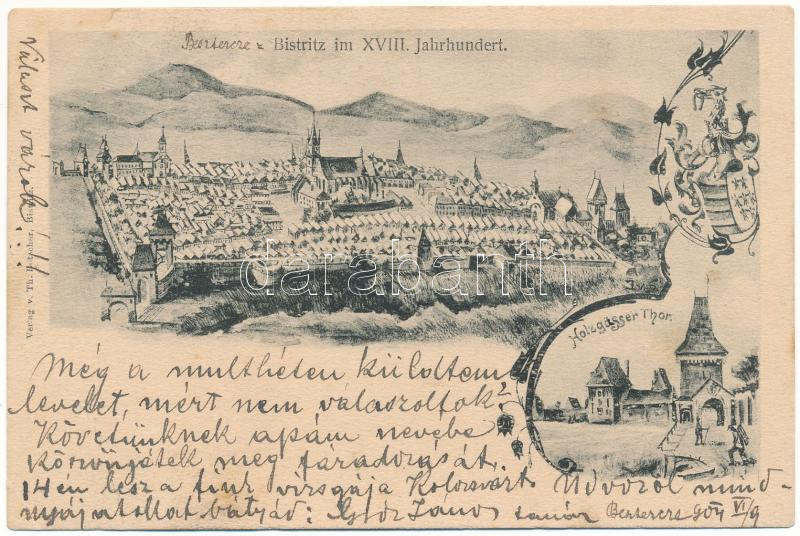 Beszterce = Bistritz im XVIII. Jahrhundert.
Választ várok!!!
Verlag v. Th. Botscher, Bistritz.
darabanth
Holzgasser Thor.
Még a multhéten küldtem
levelet, mért nem válaszoltok?
Követünknek apám nevébe
köszönjétek meg fáradozsát.
14 én lesz a fiuk vizsgája Kolozsvárt Üdvözöl mind-
nyájatokat bátyád: János tanár Beszterce 904 VI/9